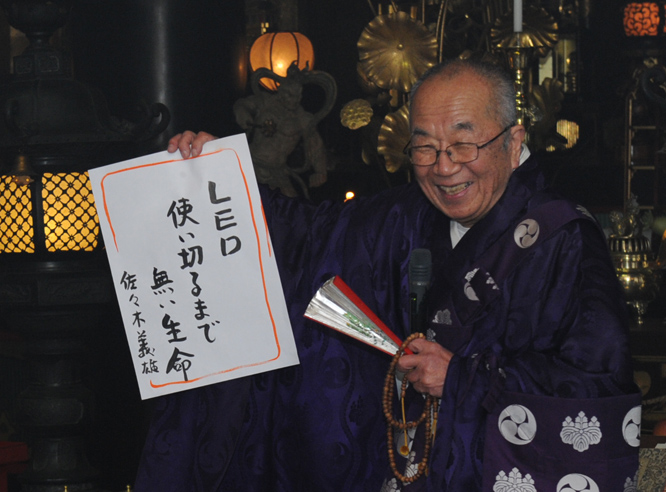 LED
使い切るまで
無い生命
佐々木義雄